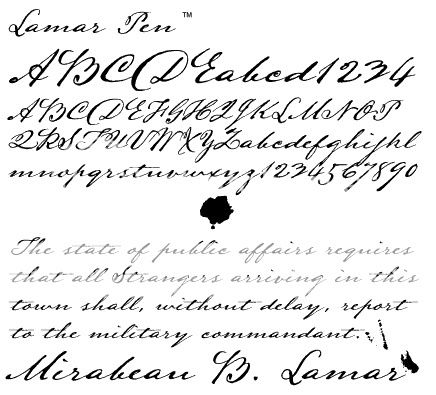 Lamar Pen™
ABCDEabcd1234
ABCDEFGHIJKLMNOP
QRSTUVWXYZabcdefghijkl
mnopqrstuvwxyz1234567890
The state of public affairs requires
that all Strangers arriving in this
town shall, without delay, report
to the military commandant.
Mirabeau B. Lamar